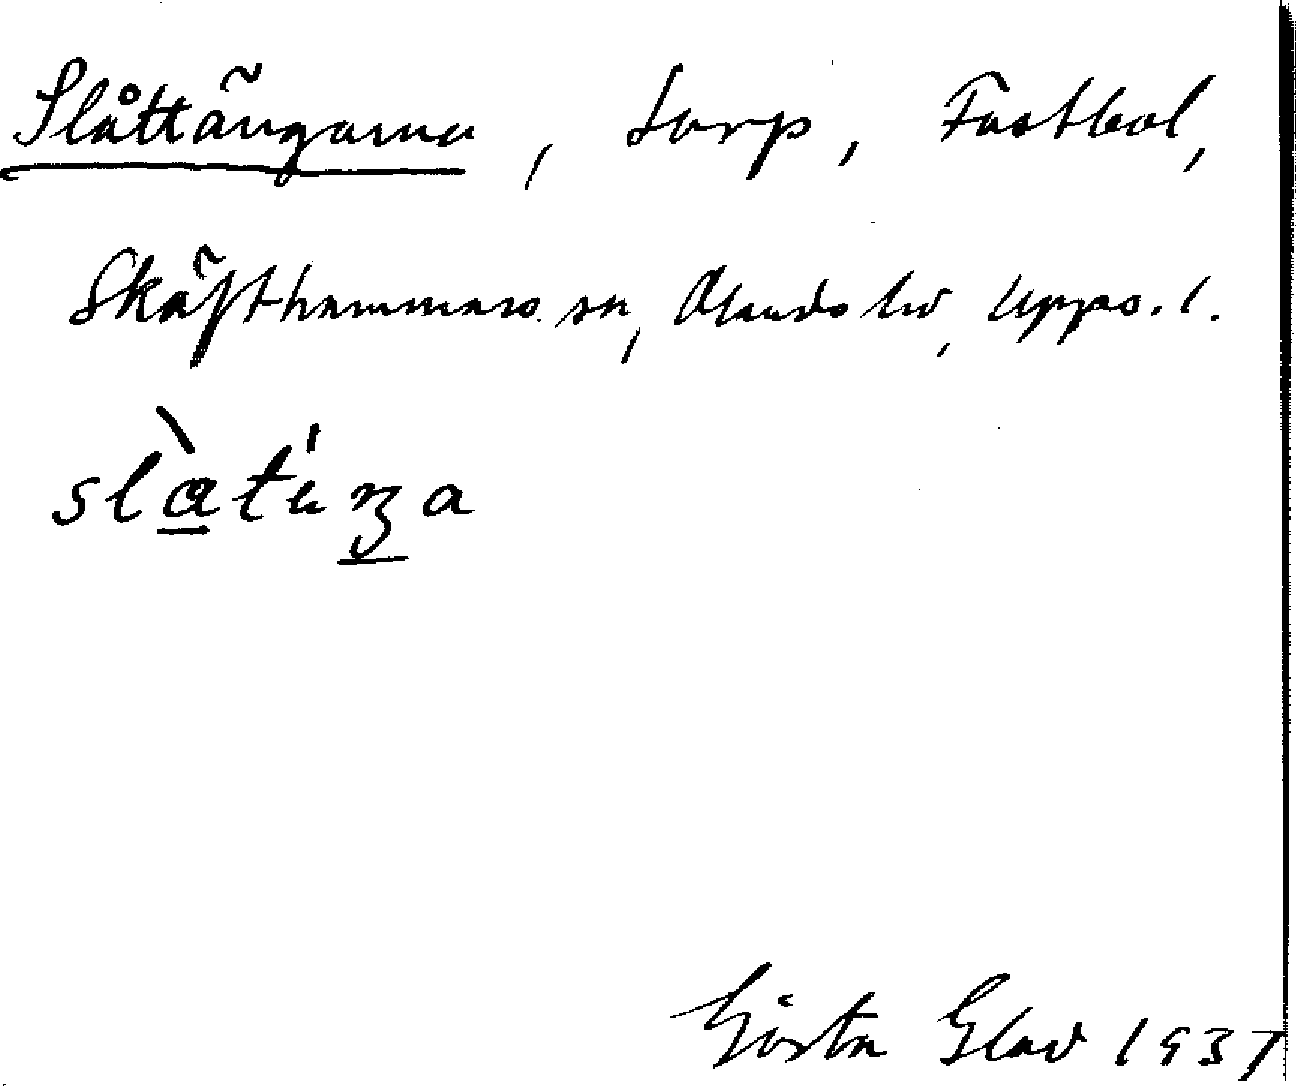 Slåttängarna, torp, Fastbol,
Skäfthammars sn, Olands hd, Upps. l.
Gösta Glad 1937